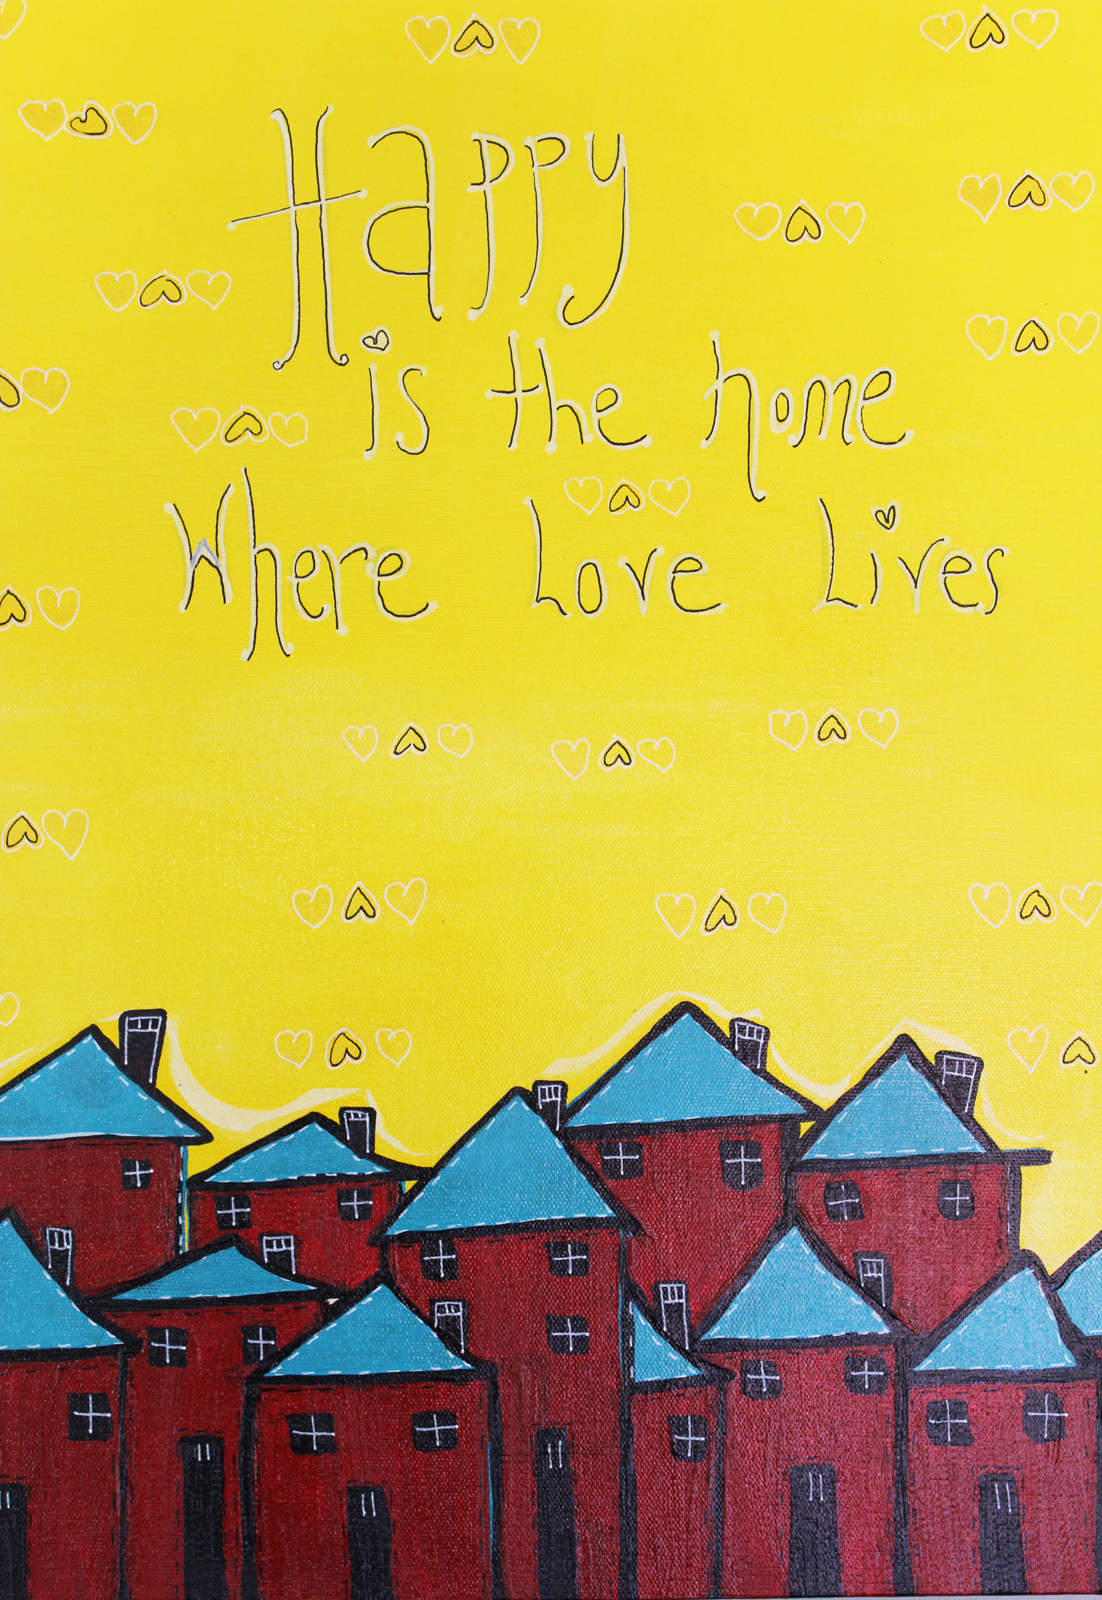 Happy
is the home
Where Love Lives